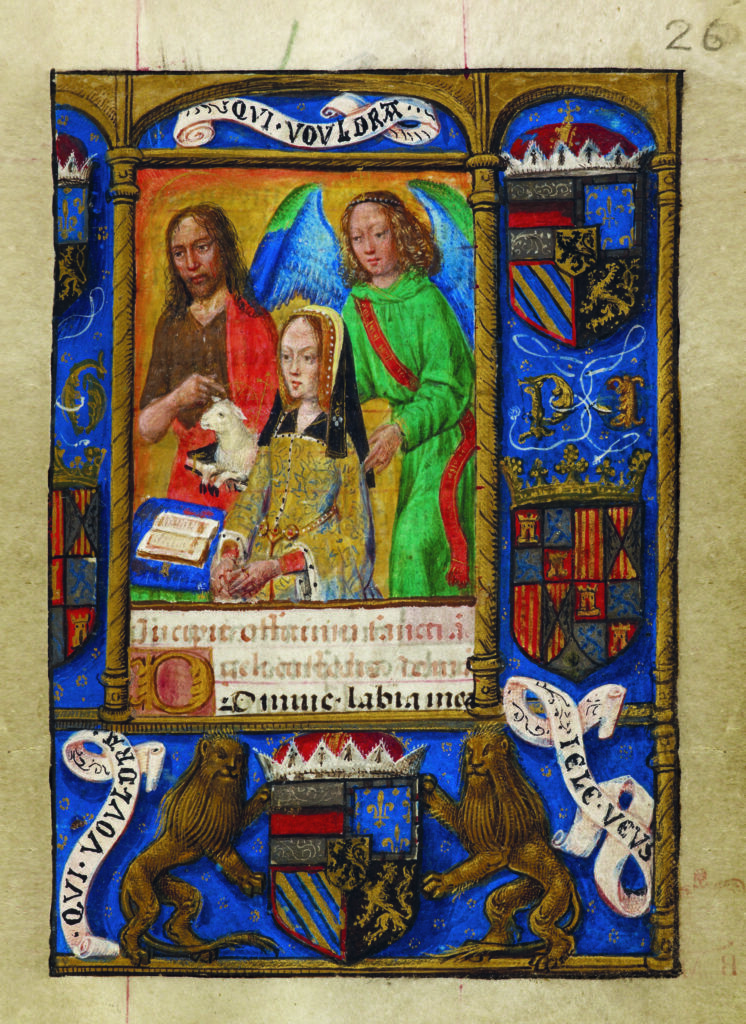 26
QVI · VOVLDRA
P I
Incipit officium sancti a
Domine · labia mea
QVI · VOVLDRA
IE LE · VEVS